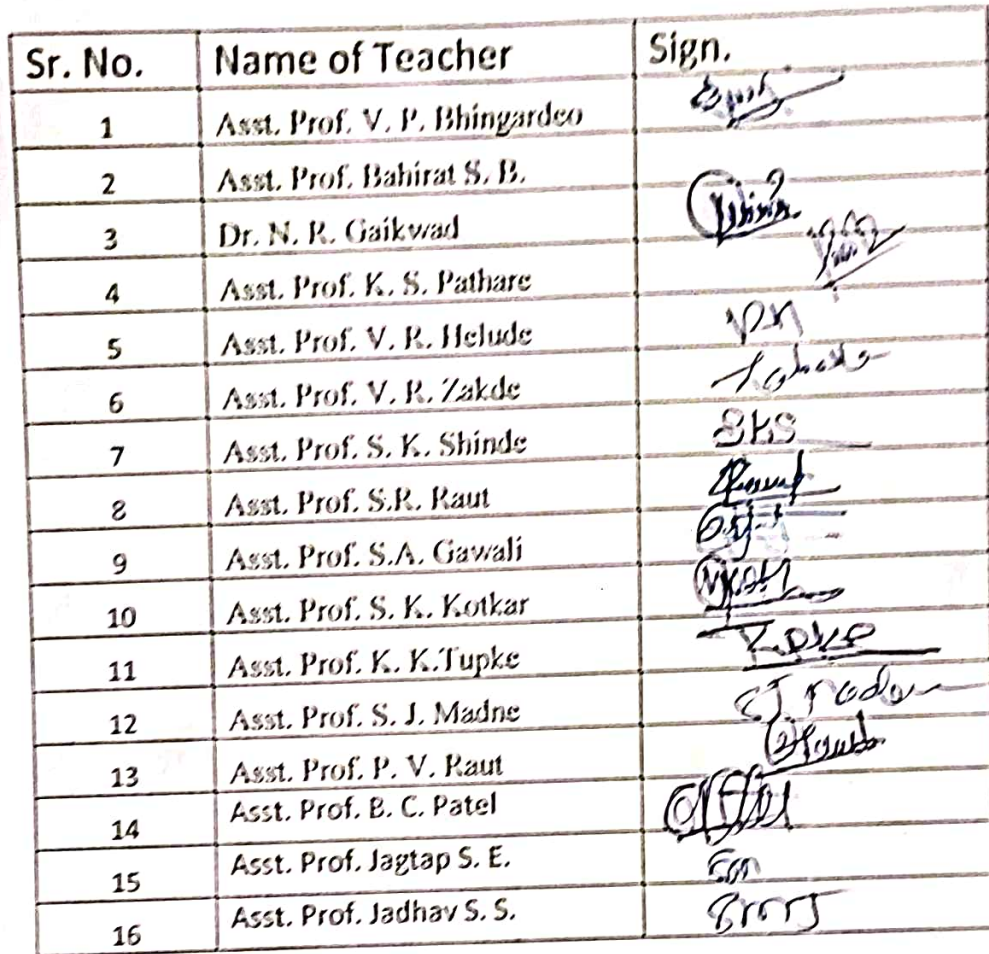 Sr. No. Name of Teacher Sign.
1 Asst. Prof. V. P. Bhingardeo
2 Asst. Prof. Bahirat S. B.
3 Dr. N. R. Gaikwad
4 Asst. Prof. K. S. Pathare
5 Asst. Prof. V. R. Helude
6 Asst. Prof. V. R. Zakde
7 Asst. Prof. S. K. Shinde SKS
8 Asst. Prof. S.R. Raut
9 Asst. Prof. S.A. Gawali
10 Asst. Prof. S. K. Kotkar
11 Asst. Prof. K. K.Tupke
12 Asst. Prof. S. J. Madne
13 Asst. Prof. P. V. Raut
14 Asst. Prof. B. C. Patel
15 Asst. Prof. Jagtap S. E.
16 Asst. Prof. Jadhav S. S.